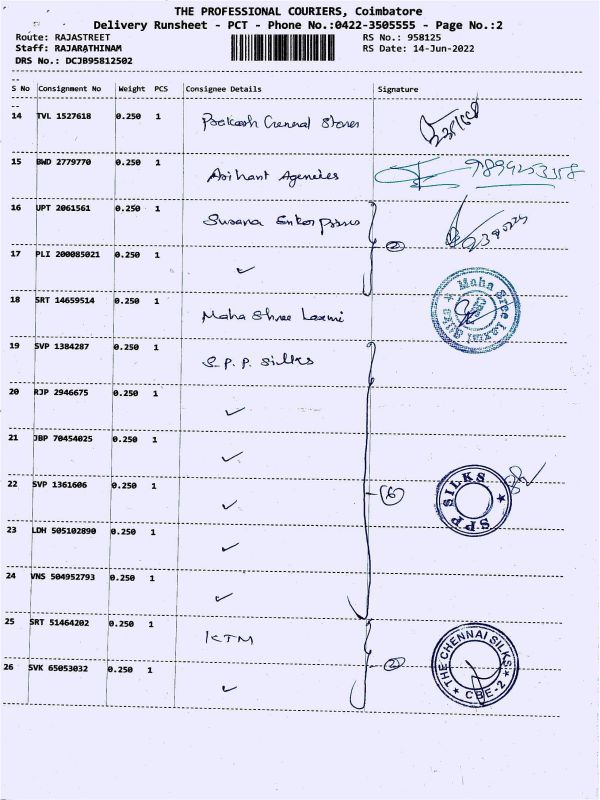 THE PROFESSIONAL COURIERS, Coimbatore
Delivery Runsheet - PCT - Phone No.:0422-3505555 - Page No.:2
Route: RAJASTREET RS No.: 958125
Staff: RAJARATHINAM RS Date: 14-Jun-2022
DRS No.: DCJB95812502
S No Consignment No Weight PCS Consignee Details Signature
14 TVL 1527618 0.250 1 Prakash General Stores
15 BWD 2779770 0.250 1 Arihant Agencies 9894253358
16 UPT 2061561 0.250 1 Susana Enterprises
17 PLI 200085021 0.250 1 ✓ 2
18 SRT 14659514 0.250 1 Maha Shree Laxmi Maha Sree Laxmi Silks
19 SVP 1384287 0.250 1 S.P.P. Silks
20 RJP 2946675 0.250 1 ✓
21 JBP 70454025 0.250 1 ✓
22 SVP 1361606 0.250 1 ✓ 6 SPP SILKS
23 LDH 505102890 0.250 1 ✓
24 VNS 504952793 0.250 1 ✓
25 SRT 51464202 0.250 1 KTM
26 SVK 65053032 0.250 1 ✓ 2 THE CHENNAI SILKS CBE-2